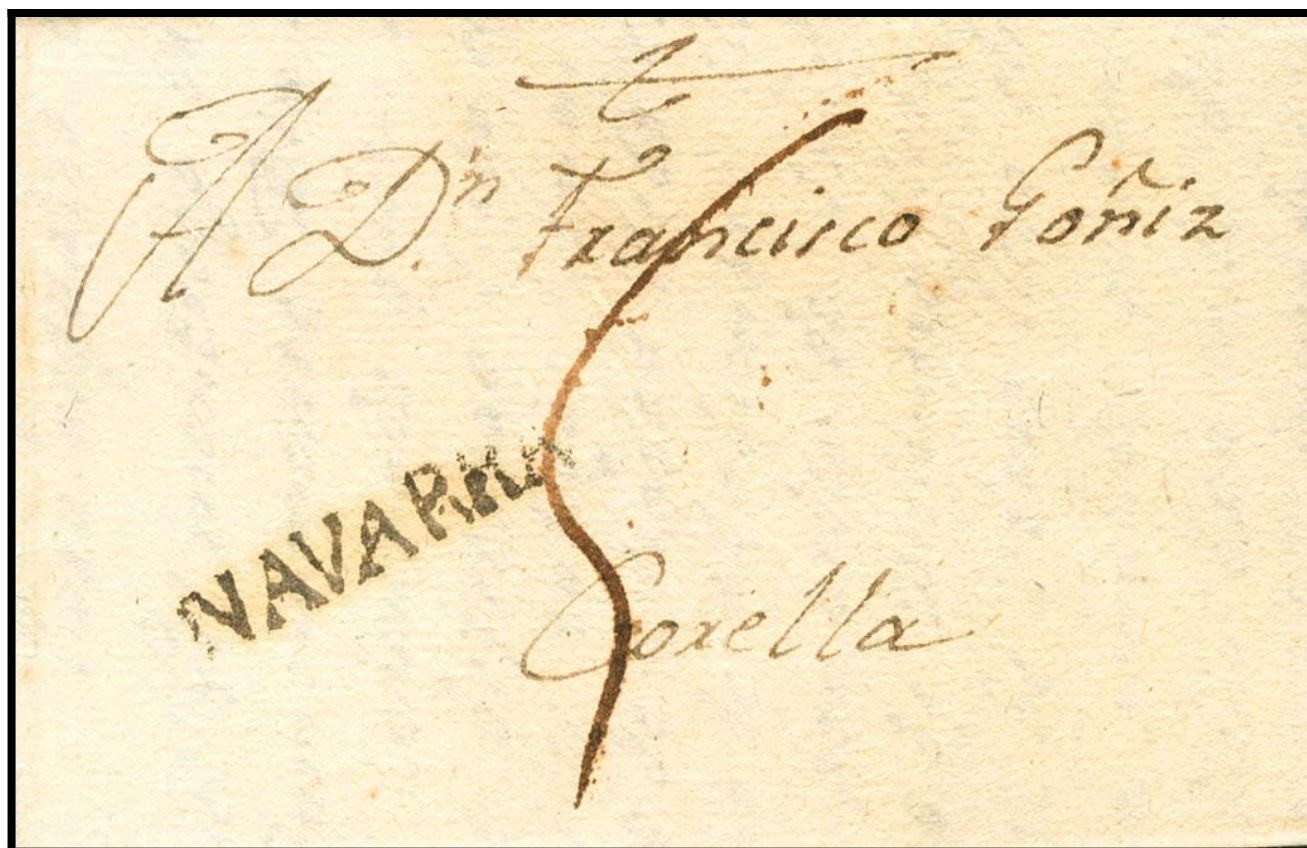 A D.n Francisco Goñiz
NAVARRA
Corella